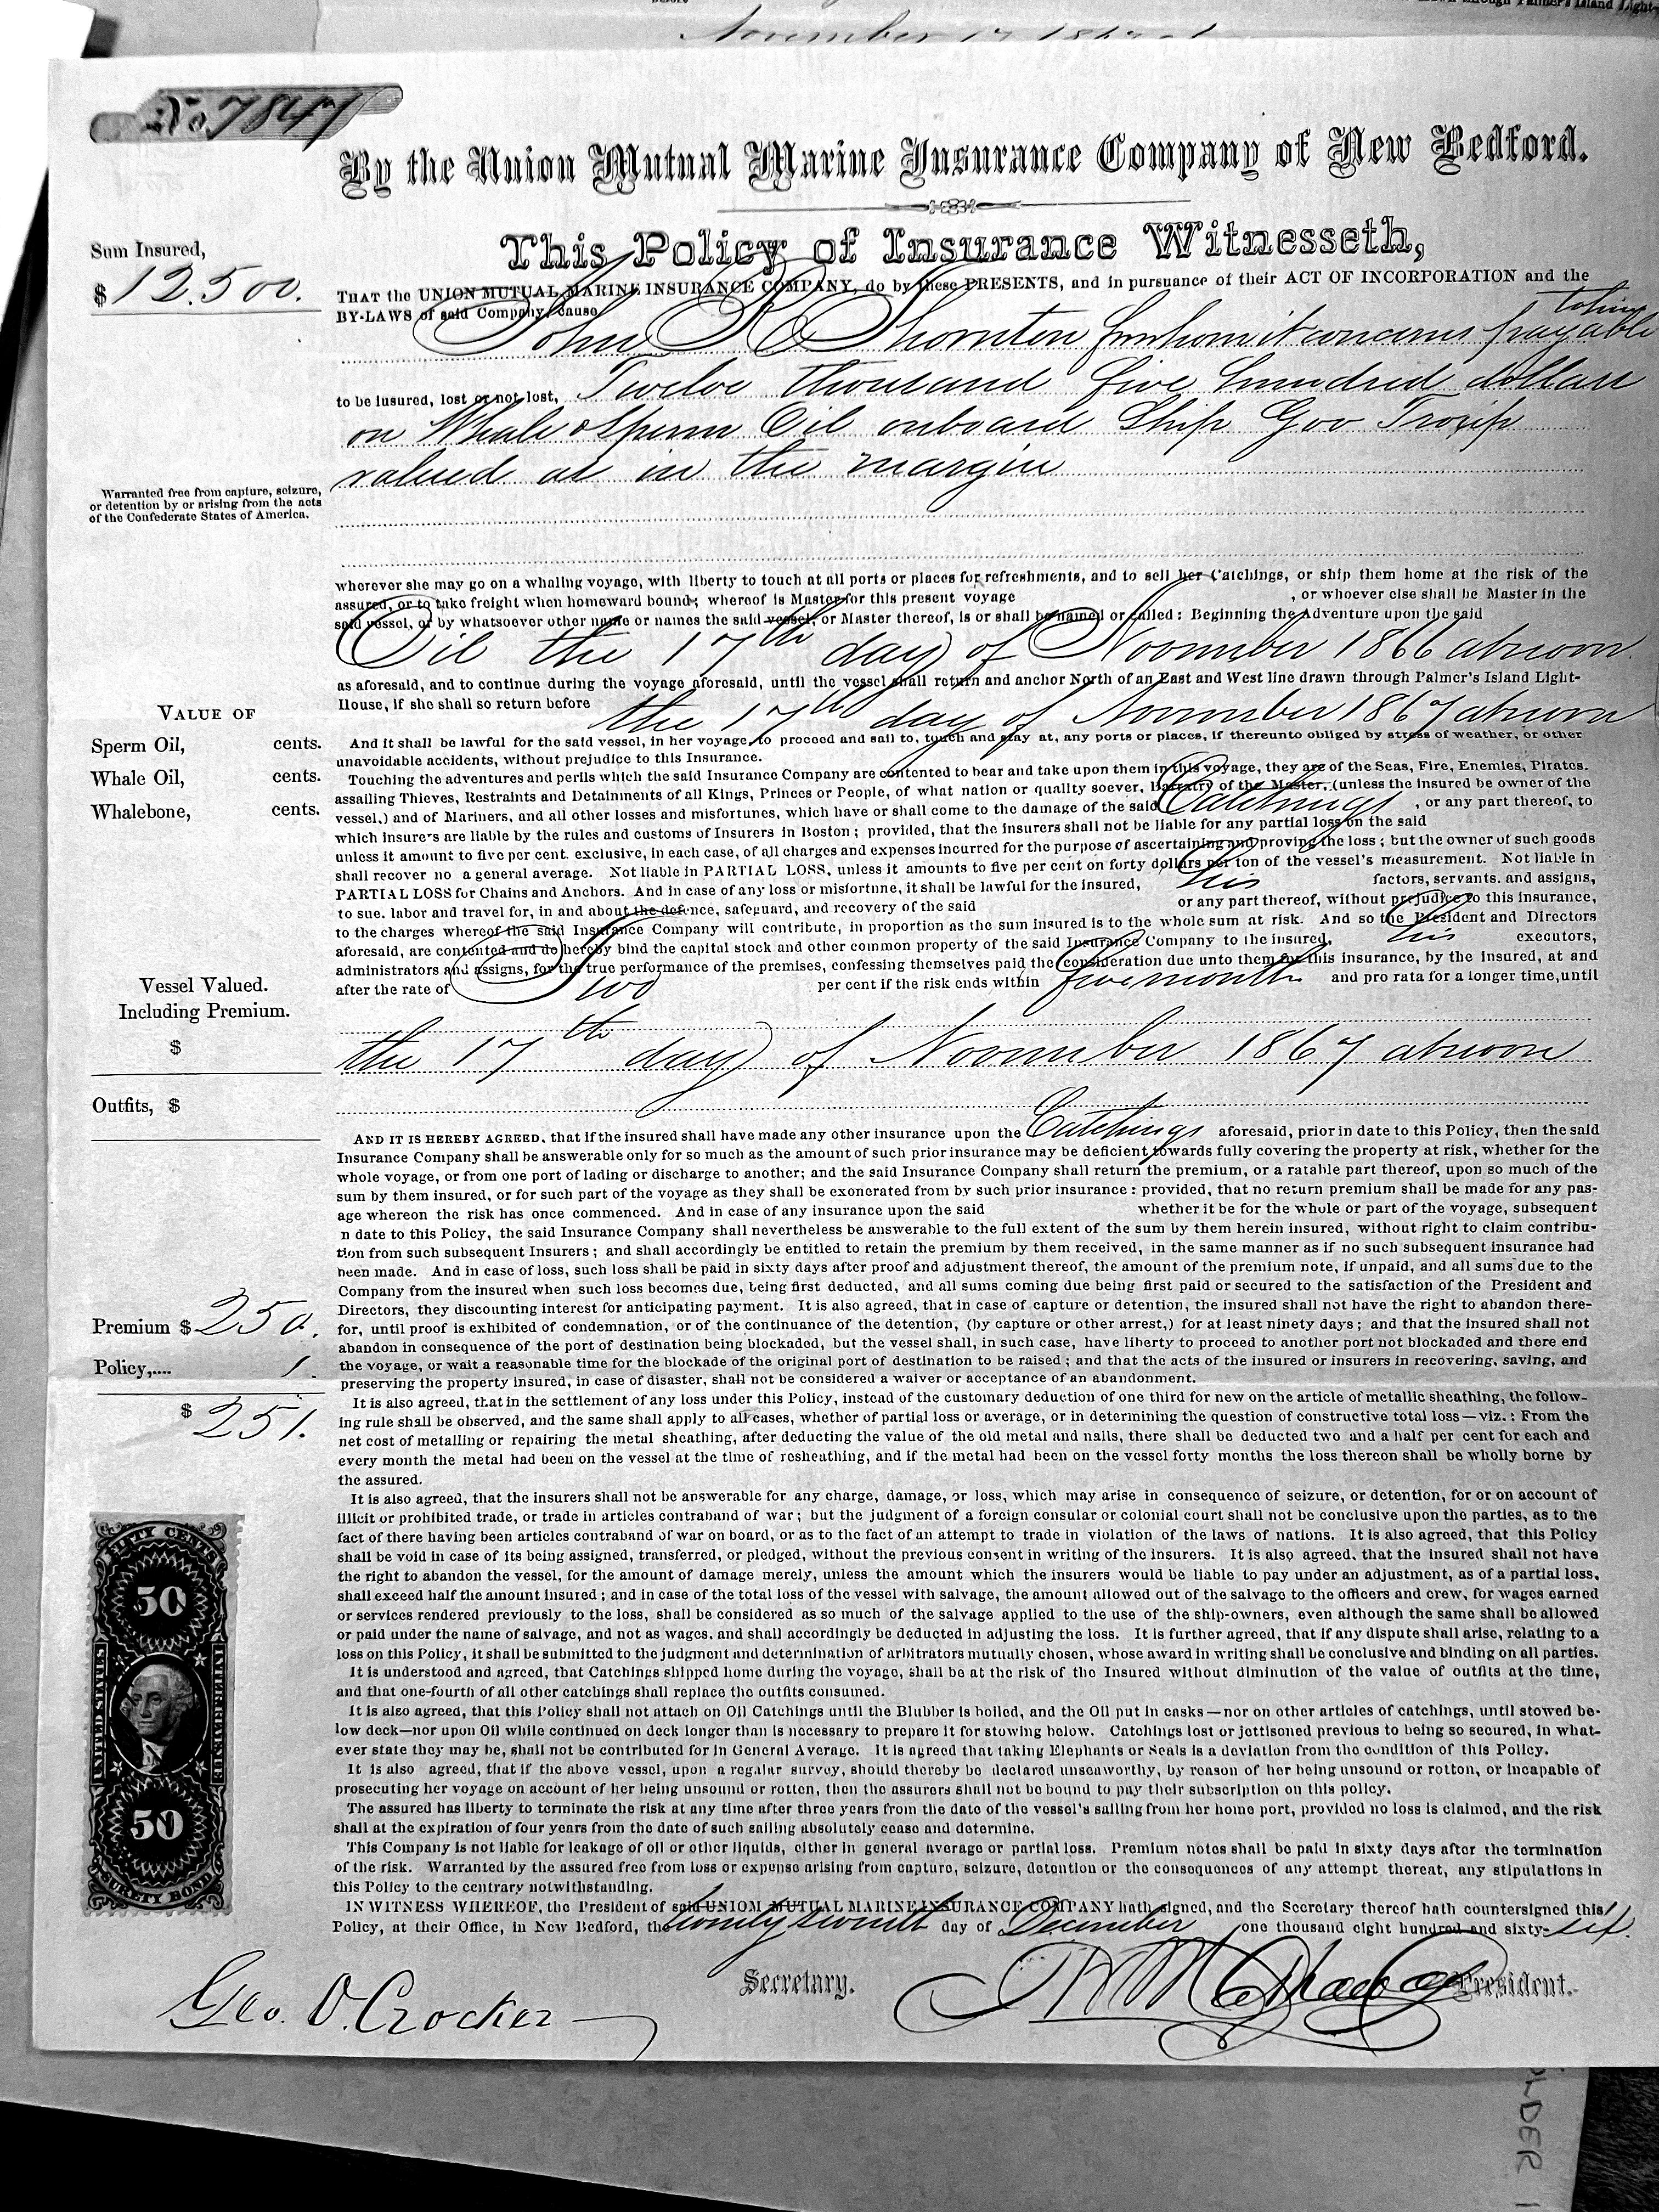 November 17 1867
No. 7847
By the Union Mutual Marine Insurance Company of New Bedford.
This Policy of Insurance Witnesseth,
Sum Insured,
$ 12.500.
THAT the UNION MUTUAL MARINE INSURANCE COMPANY, do by these PRESENTS, and in pursuance of their ACT OF INCORPORATION and the
BY-LAWS of said Company, cause
to him
John R Thornton for whom it concerns payable
to be insured, lost or not lost, Twelve thousand five hundred dollars
on Whale & Sperm Oil onboard Ship Gov Troup
valued at in the margin
Warranted free from capture, seizure,
or detention by or arising from the acts
of the Confederate States of America.
wherever she may go on a whaling voyage, with liberty to touch at all ports or places for refreshments, and to sell her Catchings, or ship them home at the risk of the
assured, or to take freight when homeward bound; whereof is Master for this present voyage , or whoever else shall be Master in the
said vessel, or by whatsoever other name or names the said vessel, or Master thereof, is or shall be named or called: Beginning the Adventure upon the said
Oil the 17th day of November 1866 at noon
as aforesaid, and to continue during the voyage aforesaid, until the vessel shall return and anchor North of an East and West line drawn through Palmer's Island Light-
House, if she shall so return before the 17th day of November 1867 at noon
VALUE OF
Sperm Oil, cents.
Whale Oil, cents.
Whalebone, cents.
And it shall be lawful for the said vessel, in her voyage, to proceed and sail to, touch and stay at, any ports or places, if thereunto obliged by stress of weather, or other
unavoidable accidents, without prejudice to this Insurance.
Touching the adventures and perils which the said Insurance Company are contented to bear and take upon them in this voyage, they are of the Seas, Fire, Enemies, Pirates.
assailing Thieves, Restraints and Detainments of all Kings, Princes or People, of what nation or quality soever, Barratry of the Master, (unless the insured be owner of the
vessel,) and of Mariners, and all other losses and misfortunes, which have or shall come to the damage of the said Catchings , or any part thereof, to
which insurers are liable by the rules and customs of Insurers in Boston; provided, that the insurers shall not be liable for any partial loss on the said
unless it amount to five per cent. exclusive, in each case, of all charges and expenses incurred for the purpose of ascertaining and proving the loss; but the owner of such goods
shall recover no a general average. Not liable in PARTIAL LOSS, unless it amounts to five per cent on forty dollars per ton of the vessel's measurement. Not liable in
PARTIAL LOSS for Chains and Anchors. And in case of any loss or misfortune, it shall be lawful for the insured, his factors, servants. and assigns,
to sue. labor and travel for, in and about the defence, safeguard, and recovery of the said or any part thereof, without prejudice to this insurance,
to the charges whereof the said Insurance Company will contribute, in proportion as the sum insured is to the whole sum at risk. And so the President and Directors
aforesaid, are contented and do hereby bind the capital stock and other common property of the said Insurance Company to the insured, his executors,
administrators and assigns, for the true performance of the premises, confessing themselves paid the consideration due unto them for this insurance, by the insured, at and
after the rate of Two per cent if the risk ends within five months and pro rata for a longer time, until
the 17th day of November 1867 at noon
Vessel Valued.
Including Premium.
$
Outfits, $
AND IT IS HEREBY AGREED, that if the insured shall have made any other insurance upon the Catchings aforesaid, prior in date to this Policy, then the said
Insurance Company shall be answerable only for so much as the amount of such prior insurance may be deficient towards fully covering the property at risk, whether for the
whole voyage, or from one port of lading or discharge to another; and the said Insurance Company shall return the premium, or a ratable part thereof, upon so much of the
sum by them insured, or for such part of the voyage as they shall be exonerated from by such prior insurance: provided, that no return premium shall be made for any pas-
age whereon the risk has once commenced. And in case of any insurance upon the said whether it be for the whole or part of the voyage, subsequent
n date to this Policy, the said Insurance Company shall nevertheless be answerable to the full extent of the sum by them herein insured, without right to claim contribu-
tion from such subsequent Insurers; and shall accordingly be entitled to retain the premium by them received, in the same manner as if no such subsequent insurance had
been made. And in case of loss, such loss shall be paid in sixty days after proof and adjustment thereof, the amount of the premium note, if unpaid, and all sums due to the
Company from the insured when such loss becomes due, being first deducted, and all sums coming due being first paid or secured to the satisfaction of the President and
Directors, they discounting interest for anticipating payment. It is also agreed, that in case of capture or detention, the insured shall not have the right to abandon there-
for, until proof is exhibited of condemnation, or of the continuance of the detention, (by capture or other arrest,) for at least ninety days; and that the insured shall not
abandon in consequence of the port of destination being blockaded, but the vessel shall, in such case, have liberty to proceed to another port not blockaded and there end
the voyage, or wait a reasonable time for the blockade of the original port of destination to be raised; and that the acts of the insured or insurers in recovering, saving, and
preserving the property insured, in case of disaster, shall not be considered a waiver or acceptance of an abandonment.
Premium $ 250.
Policy,.... 1.
$ 251.
It is also agreed, that in the settlement of any loss under this Policy, instead of the customary deduction of one third for new on the article of metallic sheathing, the follow-
ing rule shall be observed, and the same shall apply to all cases, whether of partial loss or average, or in determining the question of constructive total loss—viz.: From the
net cost of metalling or repairing the metal sheathing, after deducting the value of the old metal and nails, there shall be deducted two and a half per cent for each and
every month the metal had been on the vessel at the time of resheathing, and if the metal had been on the vessel forty months the loss thereon shall be wholly borne by
the assured.
It is also agreed, that the insurers shall not be answerable for any charge, damage, or loss, which may arise in consequence of seizure, or detention, for or on account of
illicit or prohibited trade, or trade in articles contraband of war; but the judgment of a foreign consular or colonial court shall not be conclusive upon the parties, as to the
fact of there having been articles contraband of war on board, or as to the fact of an attempt to trade in violation of the laws of nations. It is also agreed, that this Policy
shall be void in case of its being assigned, transferred, or pledged, without the previous consent in writing of the insurers. It is also agreed, that the insured shall not have
the right to abandon the vessel, for the amount of damage merely, unless the amount which the insurers would be liable to pay under an adjustment, as of a partial loss,
shall exceed half the amount insured; and in case of the total loss of the vessel with salvage, the amount allowed out of the salvage to the officers and crew, for wages earned
or services rendered previously to the loss, shall be considered as so much of the salvage applied to the use of the ship-owners, even although the same shall be allowed
or paid under the name of salvage, and not as wages, and shall accordingly be deducted in adjusting the loss. It is further agreed, that if any dispute shall arise, relating to a
loss on this Policy, it shall be submitted to the judgment and determination of arbitrators mutually chosen, whose award in writing shall be conclusive and binding on all parties.
It is understood and agreed, that Catchings shipped home during the voyage, shall be at the risk of the Insured without diminution of the value of outfits at the time,
and that one-fourth of all other catchings shall replace the outfits consumed.
It is also agreed, that this Policy shall not attach on Oil Catchings until the Blubber is boiled, and the Oil put in casks—nor on other articles of catchings, until stowed be-
low deck—nor upon Oil while continued on deck longer than is necessary to prepare it for stowing below. Catchings lost or jettisoned previous to being so secured, in what-
ever state they may be, shall not be contributed for in General Average. It is agreed that taking Elephants or Seals is a deviation from the condition of this Policy.
It is also agreed, that if the above vessel, upon a regular survey, should thereby be declared unseaworthy, by reason of her being unsound or rotton, or incapable of
prosecuting her voyage on account of her being unsound or rotten, then the assurers shall not be bound to pay their subscription on this policy.
The assured has liberty to terminate the risk at any time after three years from the date of the vessel's sailing from her home port, provided no loss is claimed, and the risk
shall at the expiration of four years from the date of such sailing absolutely cease and determine.
This Company is not liable for leakage of oil or other liquids, either in general average or partial loss. Premium notes shall be paid in sixty days after the termination
of the risk. Warranted by the assured free from loss or expense arising from capture, seizure, detention or the consequences of any attempt thereat, any stipulations in
this Policy to the centrary notwithstanding.
FIFTY CENTS
50
UNITED STATES
INTER. REVENUE
50
SURETY BOND
IN WITNESS WHEREOF, the President of said UNIOM MUTUAL MARINE INSURANCE COMPANY hath signed, and the Secretary thereof hath countersigned this
Policy, at their Office, in New Bedford, the twenty seventh day of December one thousand eight hundred and sixty-six.
Geo. O. Crocker Secretary. President.